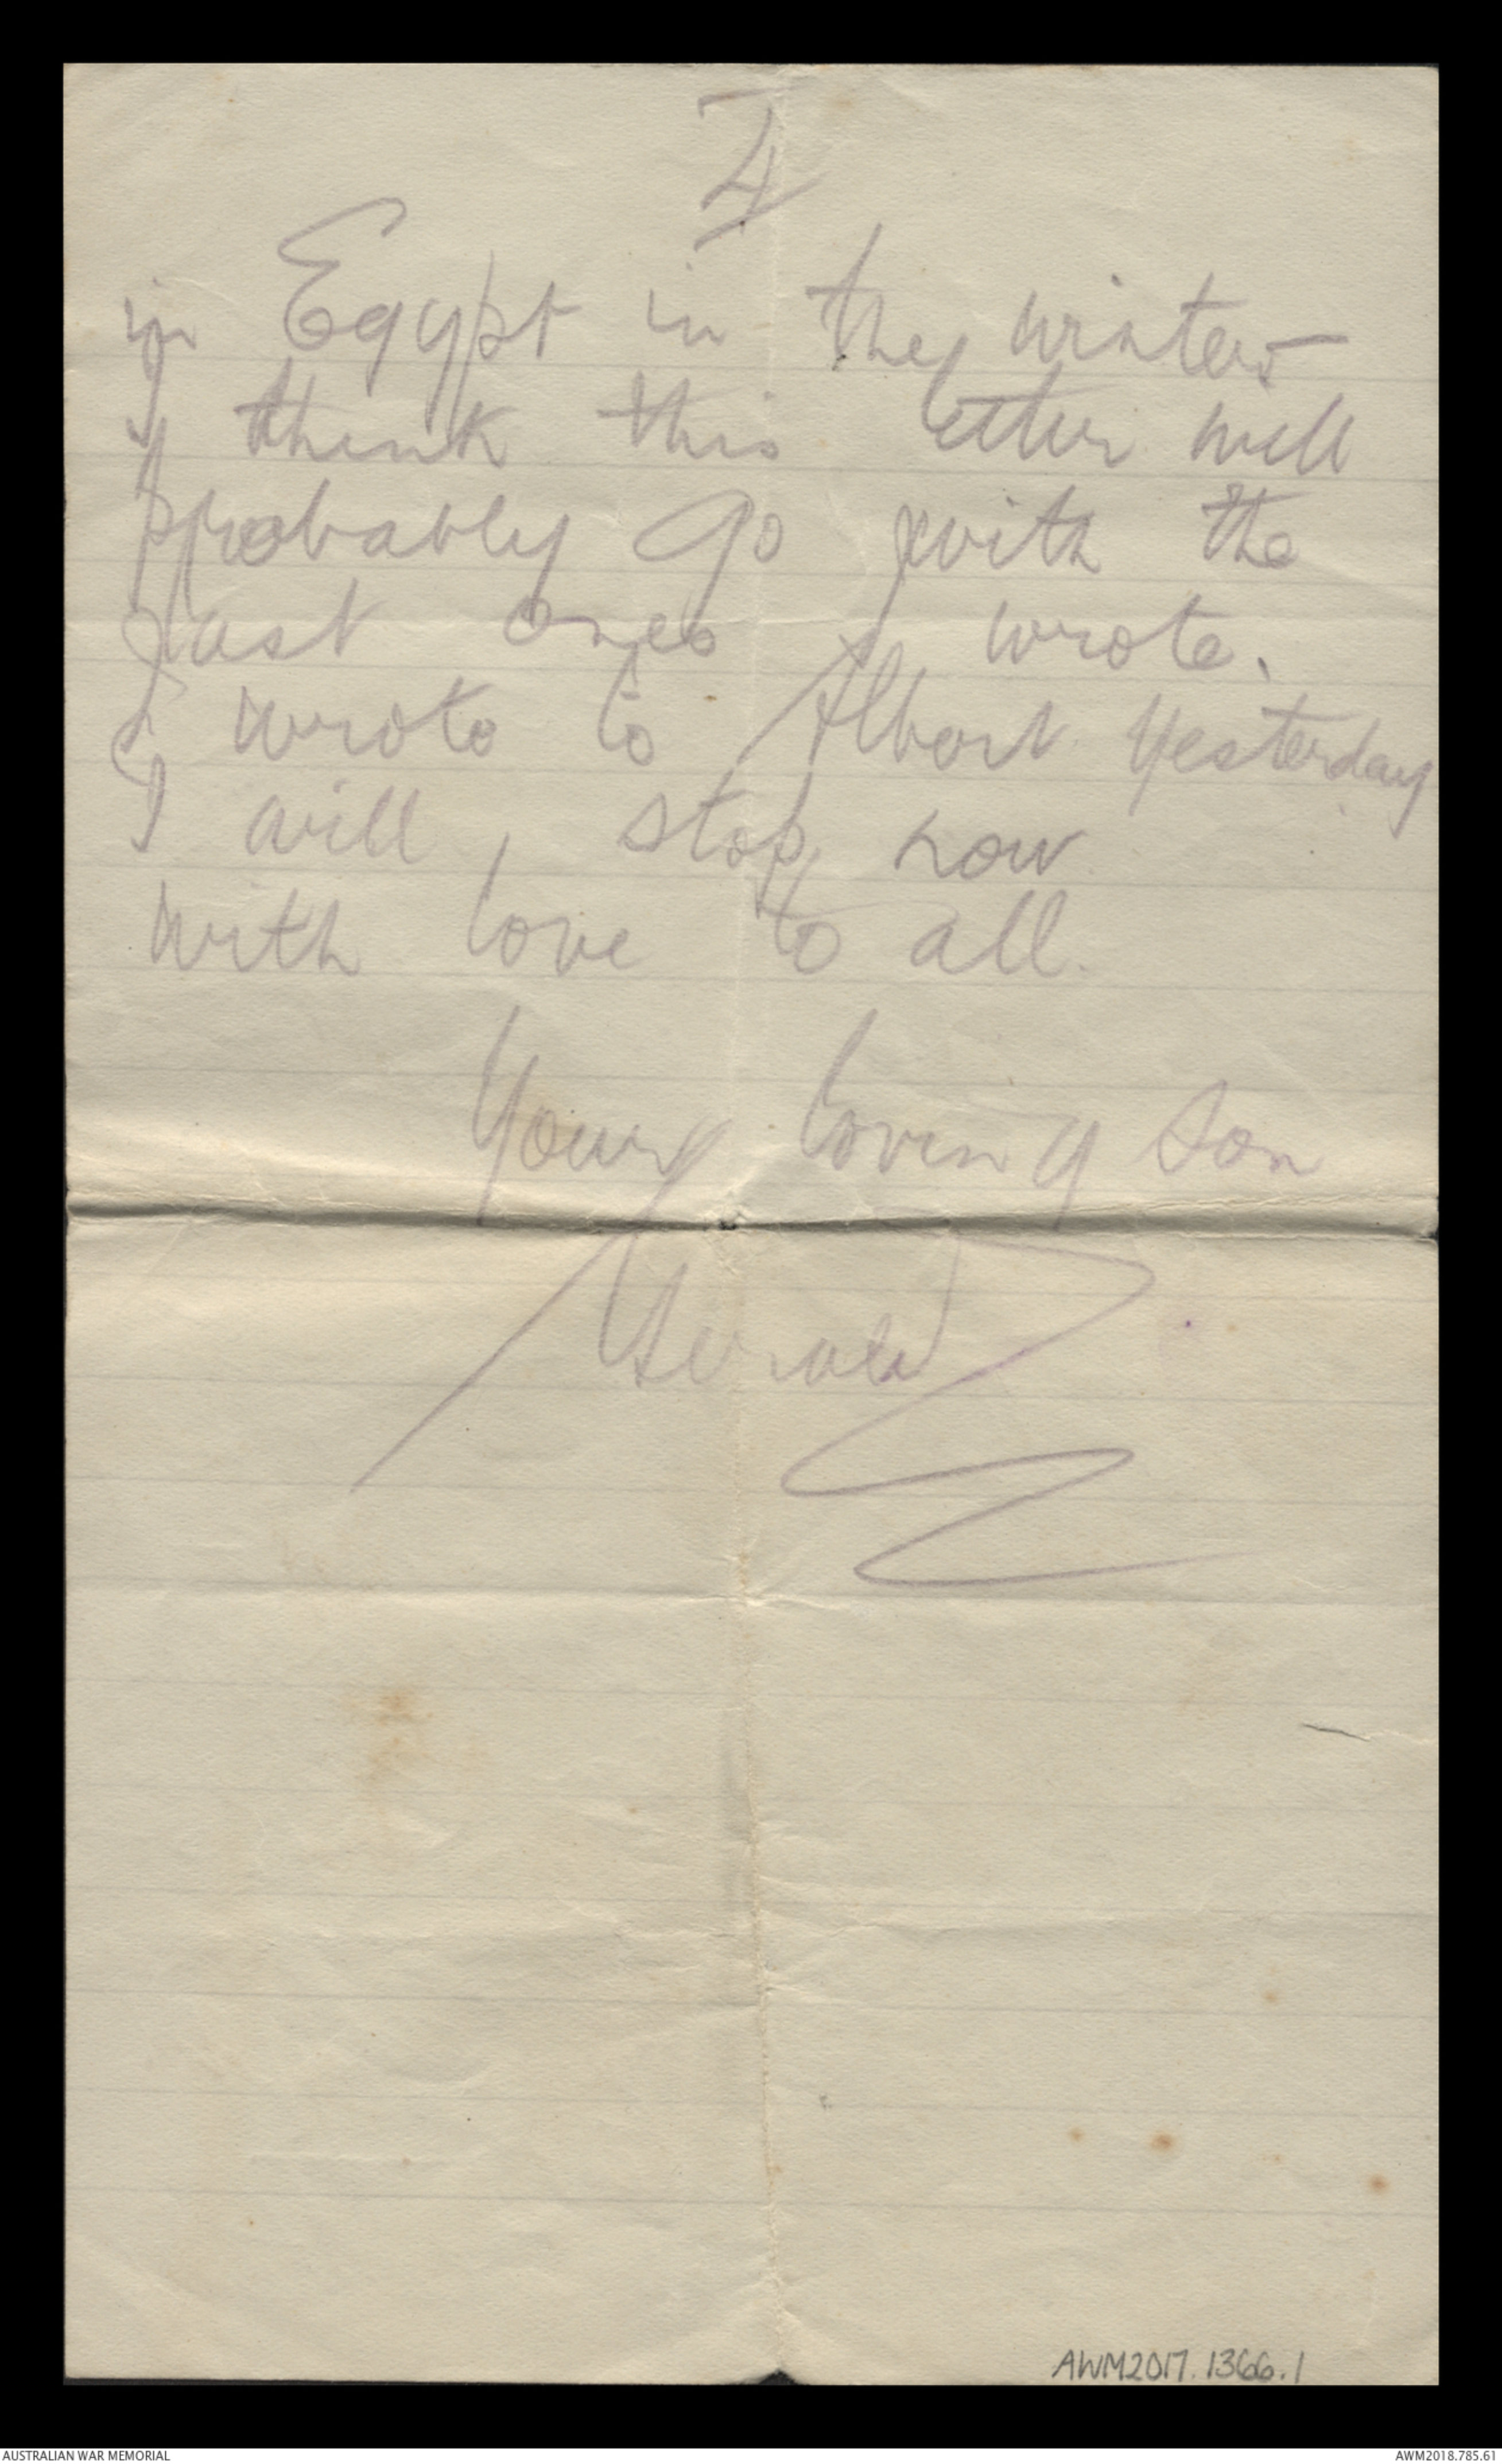 4
in Egypt in the winter
I think this letter will
probably go with the
last ones I wrote.
I wrote to Albert yesterday
I will stop now
with love to all.
Your loving son
Gerald
AWM2017.1366.1
AUSTRALIAN WAR MEMORIAL
AWM2018.785.61